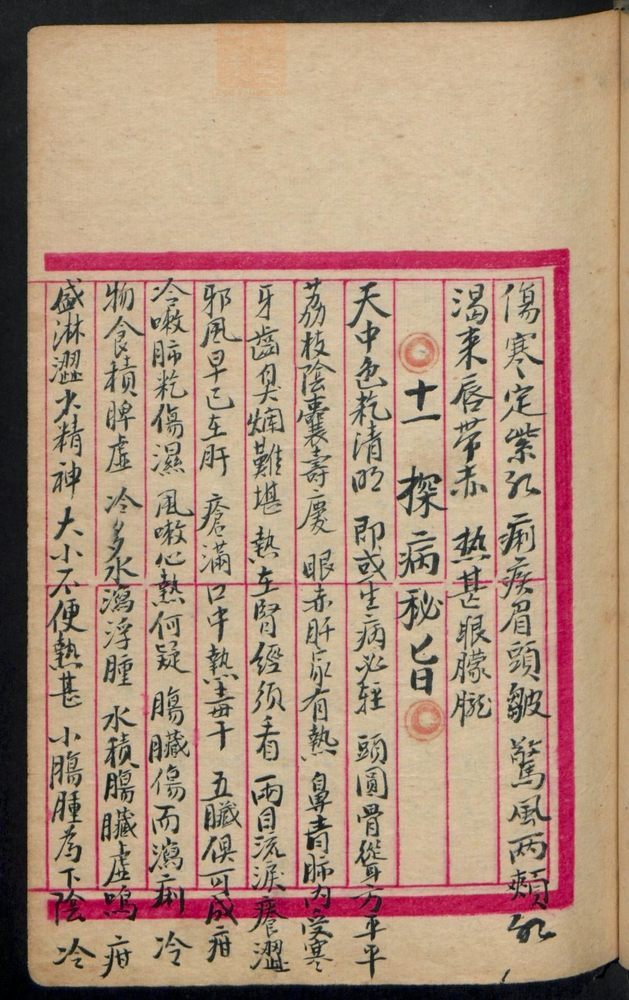 傷寒定紫紅 痢疾眉頭皺 驚風两頰紅
渴来唇带赤 热甚眼朦朧
十一 探病秘旨
天中色乾清明 即或生病必轻 頭圓骨聳方平平
荔枝陰囊壽慶 眼赤肝家有熱 鼻青肺内受寒
牙齒臭爛難堪 熱在腎經须看 兩目流淚癢澀
邪風早已在肝 瘡滿口中熱毒干 五臟俱可成疳
冷嗽肺乾傷濕 風嗽心熱何疑 腸臟傷而瀉痢 冷
物食積脾虛 冷多水瀉浮腫 水積腸臟虛鳴 疳
盛淋澀少精神 大小不便熱甚 小腸腫為下陰 冷